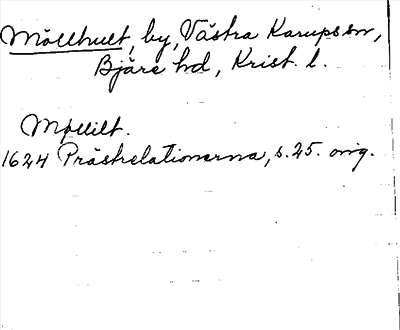 Möllhult, by, Västra Karups sn,
Bjäre hd, Krist. l.
Møllilt.
1624 Prästrelationerna, s. 25. orig.